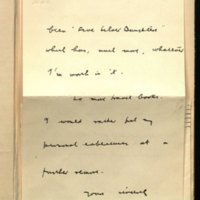 been "Five Silver Daughters"
which has, much more, whatever
I'm worth in it.
No more travel books.
I would rather put my
personal experiences at a
further remove.
Yours sincerely